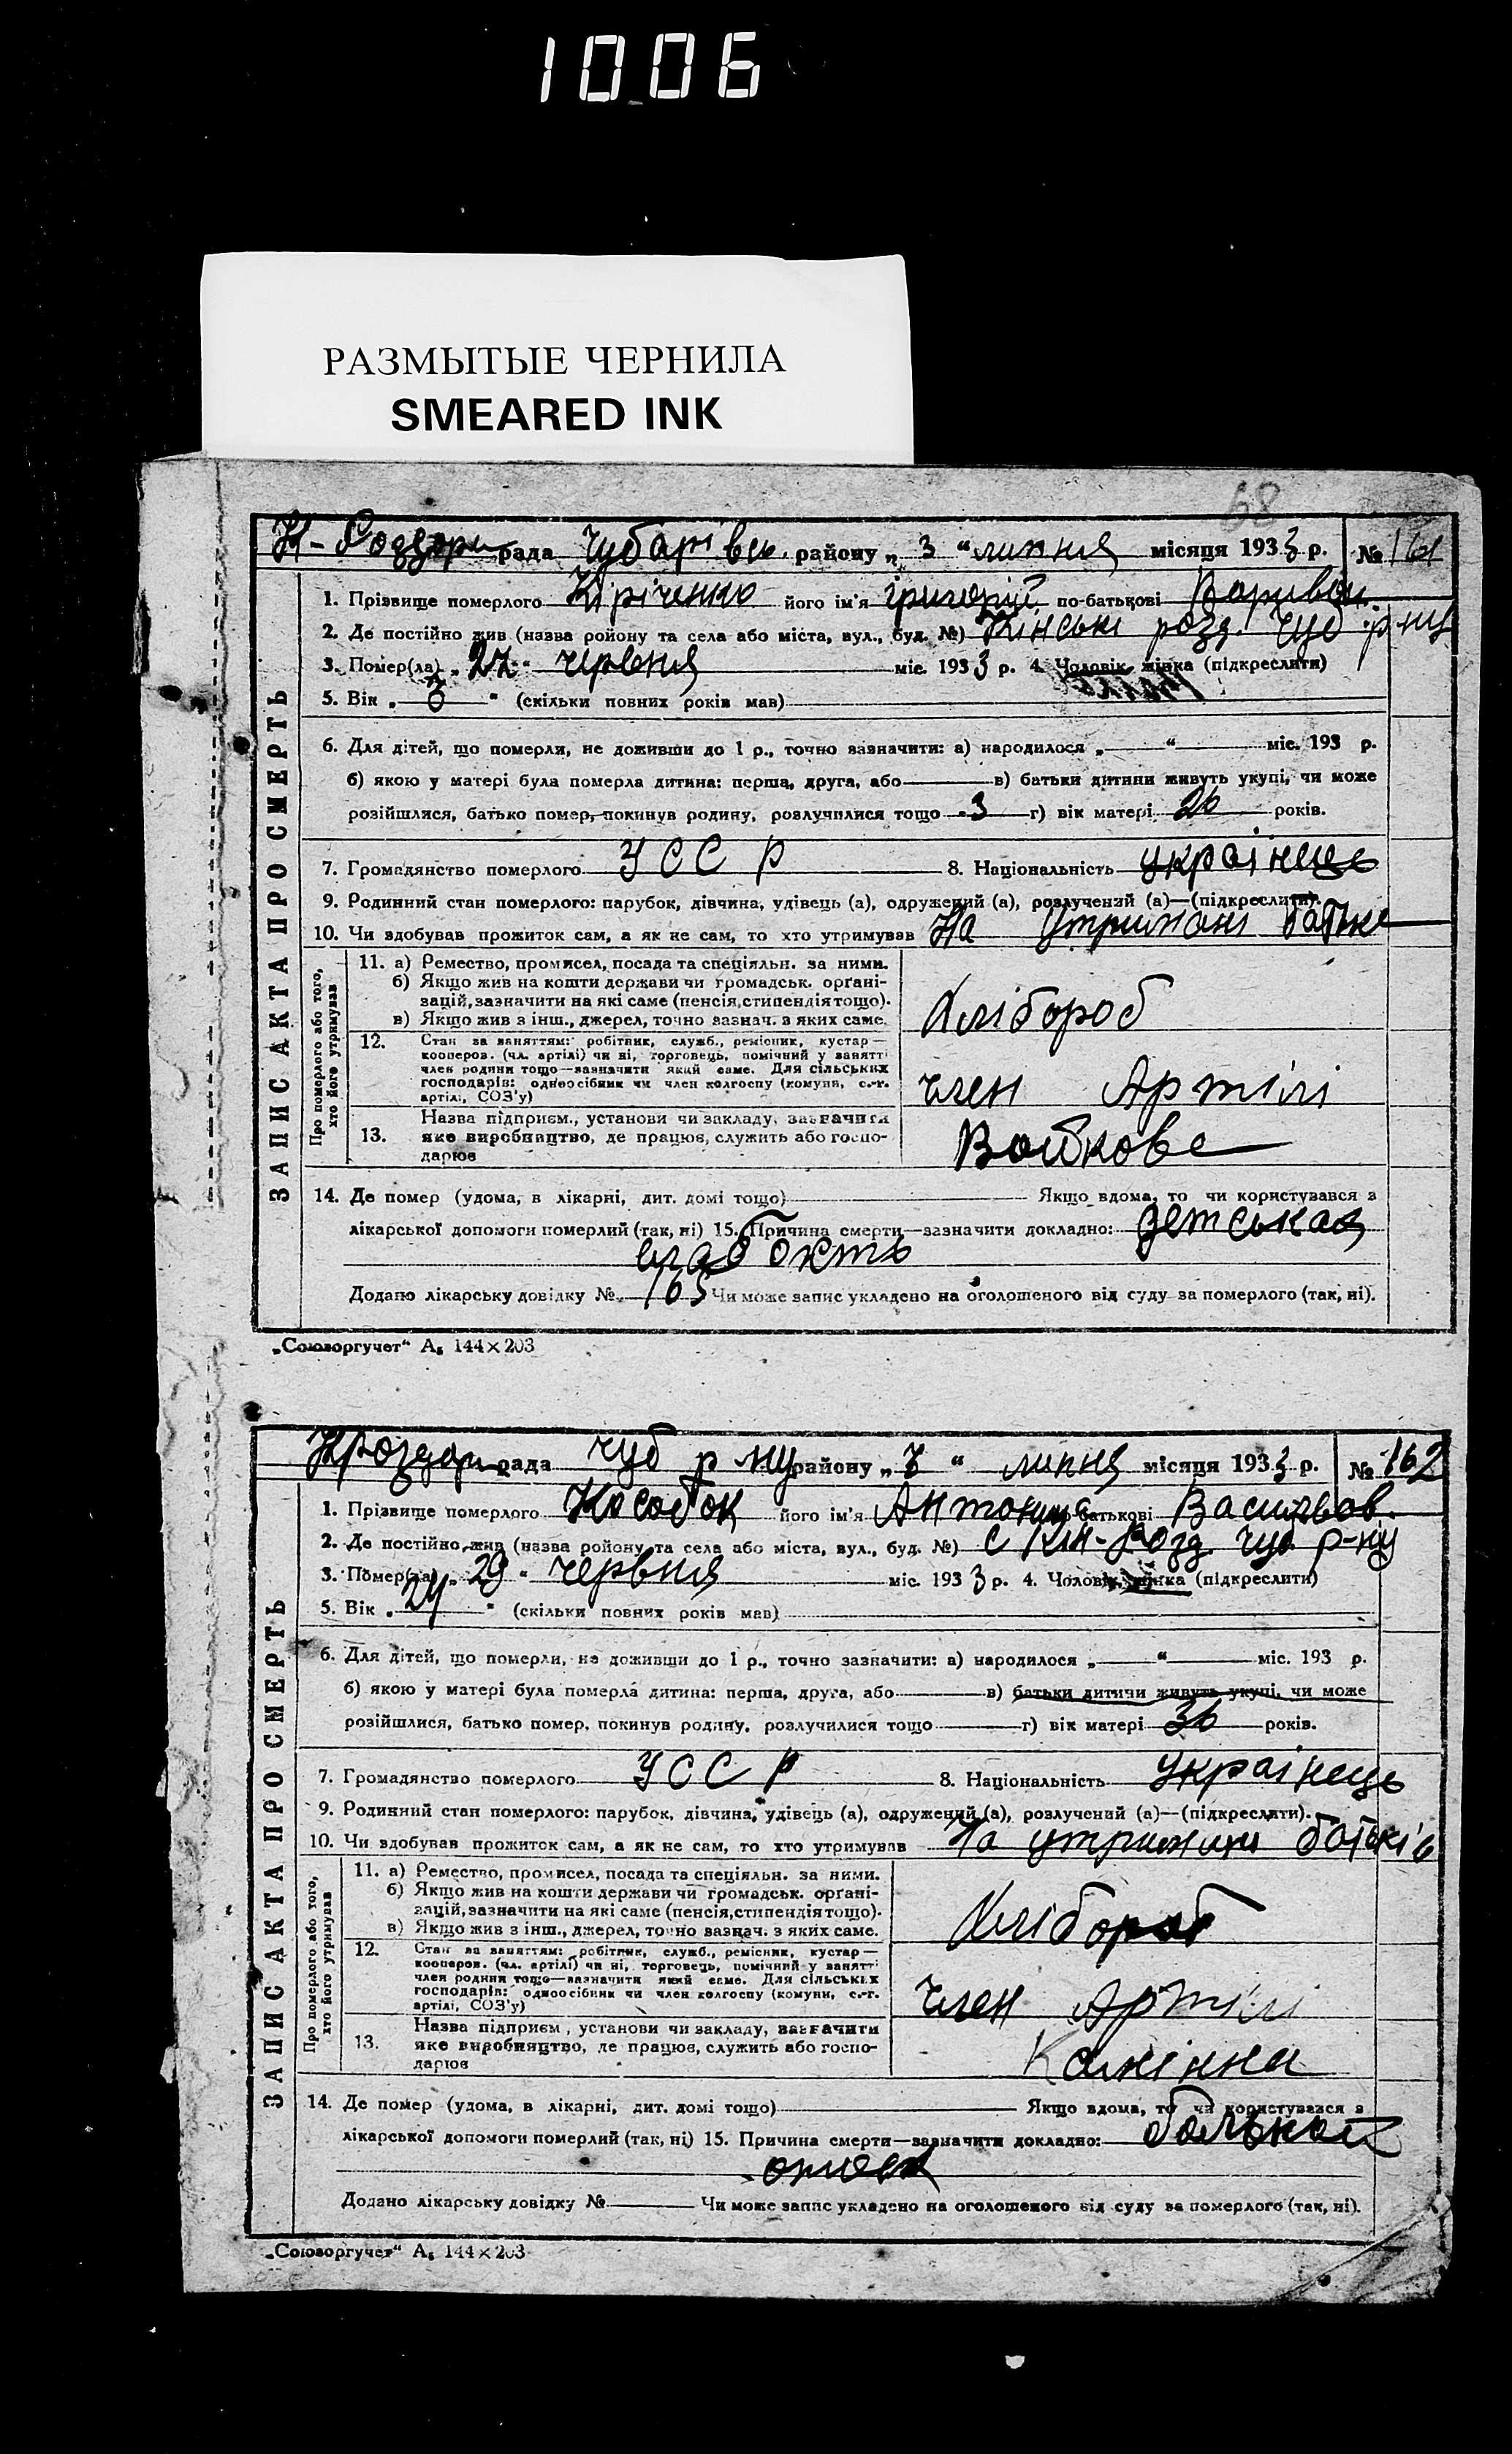 1006
РАЗМЫТЫЕ ЧЕРНИЛА
SMEARED INK
68
К-Роздори рада Чубарівсь. району „ 3 “ липня місяця 1933 р. № 161
1. Прізвище померлого Кіріченко його ім'я григорій по-батькові
2. Де постійно жив (назва ройону та села або міста, вул., буд. №) Кінські розд. Чуб р-ну
3. Помер(ла) „ 27 “ червня міс. 1933 р. 4. Чоловік, жінка (підкреслити)
5. Вік „ 3 “ (скільки повних років мав)
6. Для дітей, що померли, не доживши до 1 р., точно зазначити: а) народилося „ “ міс. 193 р.
б) якою у матері була померла дитина: перша, друга, або в) батьки дитини живуть укупі, чи може
розійшлися, батько помер, покинув родину, розлучилися тощо 3 г) вік матері 26 років.
7. Громадянство померлого УССР 8. Національність українець
9. Родинний стан померлого: парубок, дівчина, удівець (а), одружений (а), розлучений (а)—(підкреслити).
10. Чи здобував прожиток сам, а як не сам, то хто утримував На утримані батьке
ЗАПИС АКТА ПРО СМЕРТЬ
Про померлого або того, хто його утримував
11. а) Ремество, промисел, посада та спеціяльн. за ними.
б) Якщо жив на кошти держави чи громадськ. орґані-
зацій, зазначити на які саме (пенсія, стипендія тощо).
в) Якщо жив з інш., джерел, точно зазнач. з яких саме.
Хлібороб
12. Стан за заняттям: робітник, служб., ремісник, кустар—
кооперов. (чл. артілі) чи ні, торговець, помічний у занятті
член родини тощо—зазначити який саме. Для сільських
господарів: одноосібник чи член колгоспу (комуни, с.-г.
артілі, СОЗ'у)
член Артілі
13. Назва підприєм., установи чи закладу, зазначити
яке виробництво, де працює, служить або госпо-
дарює
14. Де помер (удома, в лікарні, дит. домі тощо) Якщо вдома, то чи користувався з
лікарської допомоги померлий (так, ні) 15. Причина смерти—зазначити докладно: детськая
слабость
Додано лікарську довідку № 165 Чи може запис укладено на оголошеного від суду за померлого (так, ні).
„Союзоргучет“ А5 144×203
Кроздори рада Чуб р ну району „ 3 “ липня місяця 1933 р. № 162
1. Прізвище померлого Кособок його ім'я Антони по-батькові Васильов.
2. Де постійно жив (назва ройону та села або міста, вул., буд. №) с Кін-Розд Чуб р-ну
3. Помер(ла) „ 29 “ червня міс. 1933 р. 4. Чоловік, жінка (підкреслити)
5. Вік „ 24 “ (скільки повних років мав)
6. Для дітей, що померли, не доживши до 1 р., точно зазначити: а) народилося „ “ міс. 193 р.
б) якою у матері була померла дитина: перша, друга, або в) батьки дитини живуть укупі, чи може
розійшлися, батько помер, покинув родину, розлучилися тощо г) вік матері 36 років.
7. Громадянство померлого УССР 8. Національність українець
9. Родинний стан померлого: парубок, дівчина, удівець (а), одружений (а), розлучений (а)—(підкреслити).
10. Чи здобував прожиток сам, а як не сам, то хто утримував На батьків
ЗАПИС АКТА ПРО СМЕРТЬ
Про померлого або того, хто його утримував
11. а) Ремество, промисел, посада та спеціяльн. за ними.
б) Якщо жив на кошти держави чи громадськ. орґані-
зацій, зазначити на які саме (пенсія, стипендія тощо).
в) Якщо жив з інш., джерел, точно зазнач. з яких саме.
Хлібороб
12. Стан за заняттям: робітник, служб., ремісник, кустар—
кооперов. (чл. артілі) чи ні, торговець, помічний у занятті
член родини тощо—зазначити який саме. Для сільських
господарів: одноосібник чи член колгоспу (комуни, с.-г.
артілі, СОЗ'у)
член Артілі
13. Назва підприєм., установи чи закладу, зазначити
яке виробництво, де працює, служить або госпо-
дарює
14. Де помер (удома, в лікарні, дит. домі тощо) Якщо вдома, то чи користувався з
лікарської допомоги померлий (так, ні) 15. Причина смерти—зазначити докладно:
Додано лікарську довідку № Чи може запис укладено на оголошеного від суду за померлого (так, ні).
„Союзоргучет“ А5 144×203